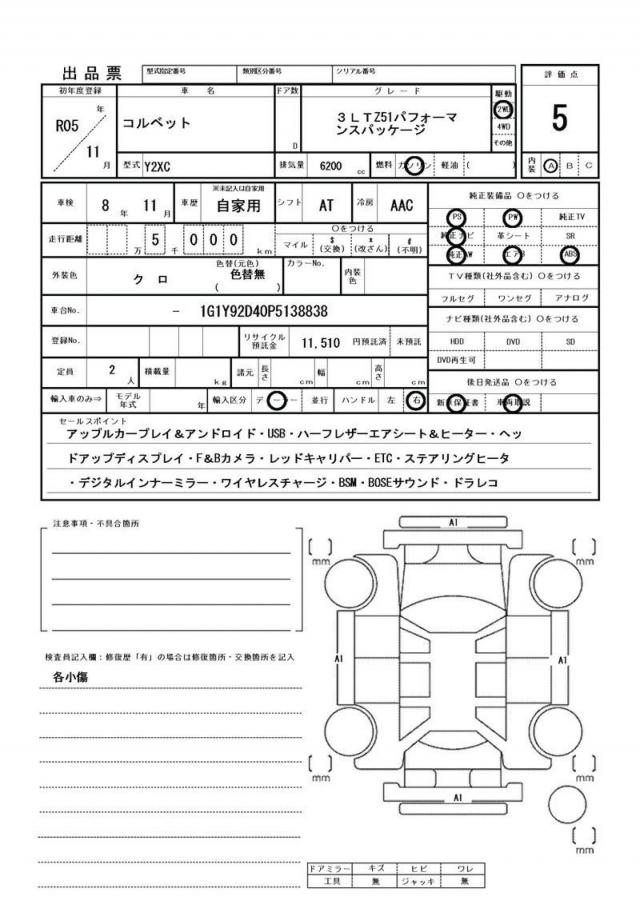 出品票
型式指定番号 類別区分番号 シリアル番号
評価点
初年度登録 車名 ドア数 グレード 駆動
R05年 コルベット 3LTZ51パフォーマンスパッケージ 2WD 5
11月 D 4WD
その他
型式 Y2XC 排気量 6200 cc 燃料 ガソリン 軽油 ( ) 内装 A B C
車検 8年 11月 車歴 ※未記入は自家用 自家用 シフト AT 冷房 AAC 純正装備品 〇をつける
PS PW 純正TV
走行距離 万 5 千 0 0 0 km 〇をつける マイル $(交換) x(改ざん) #(不明) 純正ナビ 革シート SR
純正AW エアB ABS
外装色 クロ 色替(元色) 色替無 ( ) カラーNo. 内装色 TV種類(社外品含む) 〇をつける
フルセグ ワンセグ アナログ
車台No. - 1G1Y92D40P5138838 ナビ種類(社外品含む) 〇をつける
登録No. リサイクル預託金 11,510 円預託済 未預託 HDD DVD SD
DVD再生可
定員 2人 積載量 kg 諸元 長さ cm 幅 cm 高さ cm 後日発送品 〇をつける
輸入車のみ⇒ モデル年式 年 輸入区分 ディーラー 並行 ハンドル 左 右 新車保証書 車両取説
セールスポイント
アップルカープレイ&アンドロイド・USB・ハーフレザーエアシート&ヒーター・ヘッ
ドアップディスプレイ・F&Bカメラ・レッドキャリパー・ETC・ステアリングヒータ
・デジタルインナーミラー・ワイヤレスチャージ・BSM・BOSEサウンド・ドラレコ
注意事項・不具合箇所
A1
[ ] mm [ ] mm
検査員記入欄:修復歴「有」の場合は修復箇所・交換箇所を記入
A1 A1
各小傷
[ ] mm [ ] mm
A1
[ ] mm
ドアミラー キズ ヒビ ワレ
工具 無 ジャッキ 無